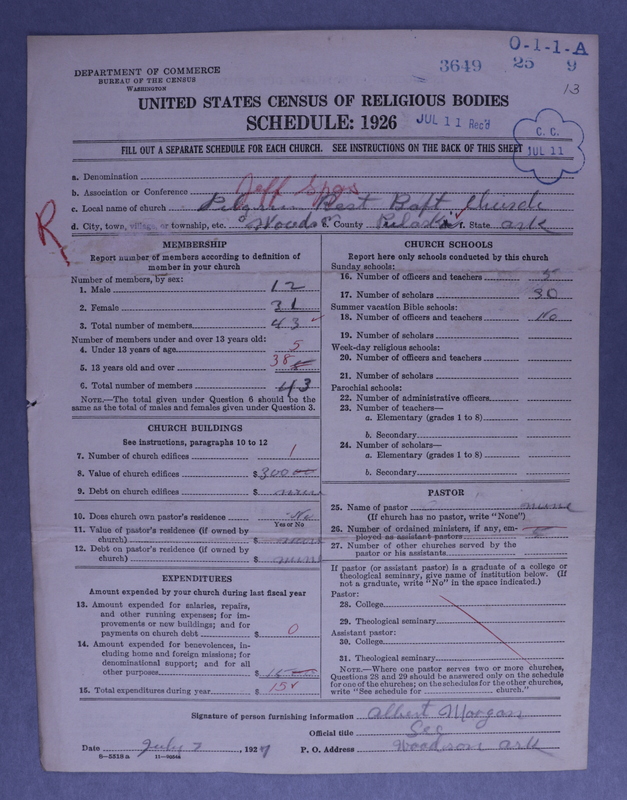 O-1-1-A
3649 25 9
13
DEPARTMENT OF COMMERCE
BUREAU OF THE CENSUS
WASHINGTON
UNITED STATES CENSUS OF RELIGIOUS BODIES
SCHEDULE: 1926
JUL 11 Rec'd
C. C.
JUL 11
FILL OUT A SEPARATE SCHEDULE FOR EACH CHURCH. SEE INSTRUCTIONS ON THE BACK OF THIS SHEET
a. Denomination
b. Association or Conference Jeff
c. Local name of church Rest Bapt Church
d. City, town, village, or township, etc. Woodson e. County Pulaski f. State Ark
R
MEMBERSHIP
Report number of members according to definition of
member in your church
Number of members, by sex:
1. Male 12
2. Female 31
3. Total number of members 43
Number of members under and over 13 years old:
4. Under 13 years of age 5
5. 13 years old and over 38
6. Total number of members 43
NOTE.—The total given under Question 6 should be the
same as the total of males and females given under Question 3.
CHURCH BUILDINGS
See instructions, paragraphs 10 to 12
7. Number of church edifices 1
8. Value of church edifices $300
9. Debt on church edifices $ none
10. Does church own pastor's residence No
Yes or No
11. Value of pastor's residence (if owned by
church) $ none
12. Debt on pastor's residence (if owned by
church) $ none
EXPENDITURES
Amount expended by your church during last fiscal year
13. Amount expended for salaries, repairs,
and other running expenses; for im-
provements or new buildings; and for
payments on church debt $ 0
14. Amount expended for benevolences, in-
cluding home and foreign missions; for
denominational support; and for all
other purposes $ 15
15. Total expenditures during year $ 15
CHURCH SCHOOLS
Report here only schools conducted by this church
Sunday schools:
16. Number of officers and teachers 5
17. Number of scholars 30
Summer vacation Bible schools:
18. Number of officers and teachers No
19. Number of scholars
Week-day religious schools:
20. Number of officers and teachers
21. Number of scholars
Parochial schools:
22. Number of administrative officers
23. Number of teachers—
a. Elementary (grades 1 to 8)
b. Secondary
24. Number of scholars—
a. Elementary (grades 1 to 8)
b. Secondary
PASTOR
25. Name of pastor none
(If church has no pastor, write "None")
26. Number of ordained ministers, if any, em-
ployed as assistant pastors
27. Number of other churches served by the
pastor or his assistants
If pastor (or assistant pastor) is a graduate of a college or
theological seminary, give name of institution below. (If
not a graduate, write "No" in the space indicated.)
Pastor:
28. College
29. Theological seminary
Assistant pastor:
30. College
31. Theological seminary
NOTE.—Where one pastor serves two or more churches,
Questions 28 and 29 should be answered only on the schedule
for one of the churches; on the schedules for the other churches,
write "See schedule for church."
Signature of person furnishing information Albert Morgan
Official title Sec
Date July 2, 1927 P. O. Address Woodson Ark
8-5518a